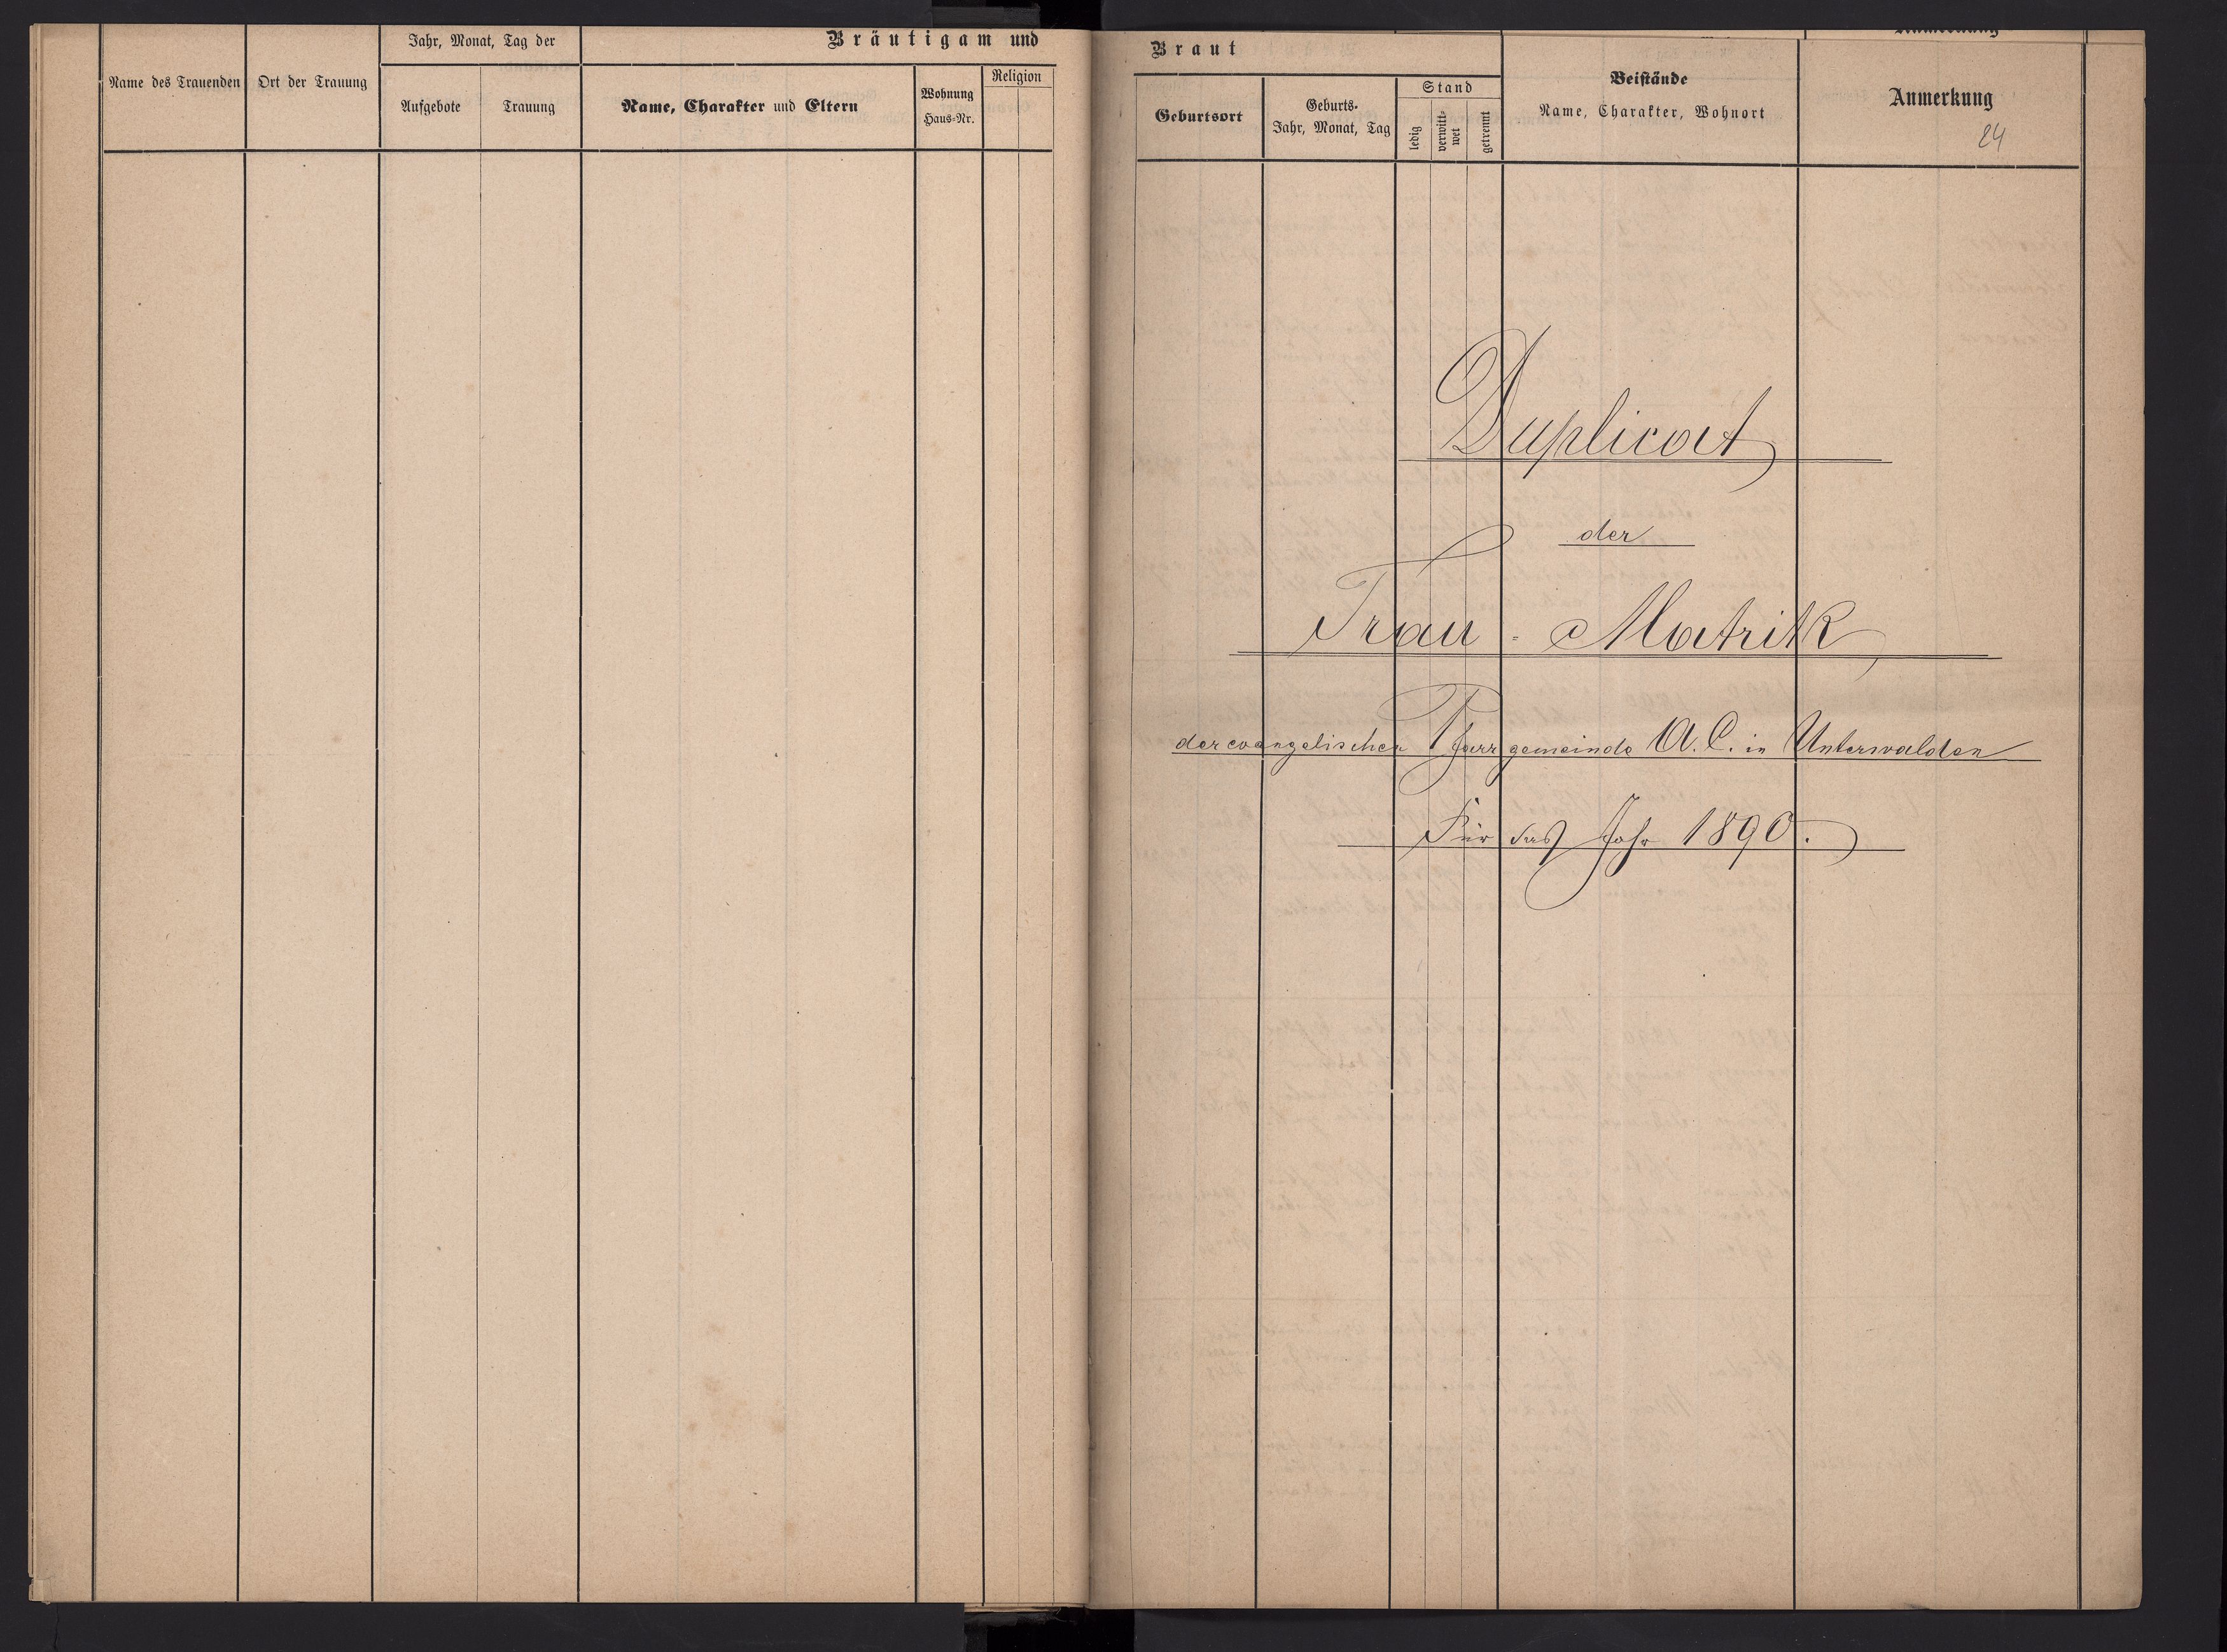 Jahr, Monat, Tag der
Bräutigam und
Name des Trauenden
Ort der Trauung
Aufgebote
Trauung
Name, Charakter und Eltern
Wohnung
Haus-Nr.
Religion
Braut
Geburtsort
Geburts-
Jahr, Monat, Tag
Stand
ledig
verwitt-
wet
getrennt
Beistände
Name, Charakter, Wohnort
Anmerkung
24
Duplicat
der
Trau-Matrik
der evangelischen Pfarrgemeinde A. C. in Unterwalden
Für das Jahr 1890.